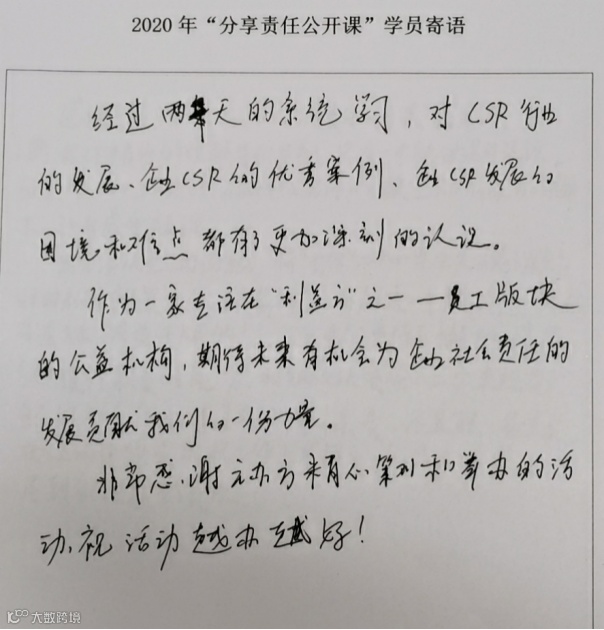 2020 年“分享责任公开课”学员寄语
经过两天的系统学习，对CSR行业
的发展、企业CSR的优秀案例、企业CSR发展的
困境和难点都有了更加深刻的认识。
作为一家专注在“利益方”之一——员工版块
的公益机构，期待未来有机会为企业社会责任的
发展贡献我们的一份力量。
非常感谢主办方精心策划和举办的活
动，祝活动越办越好！
大数跨境